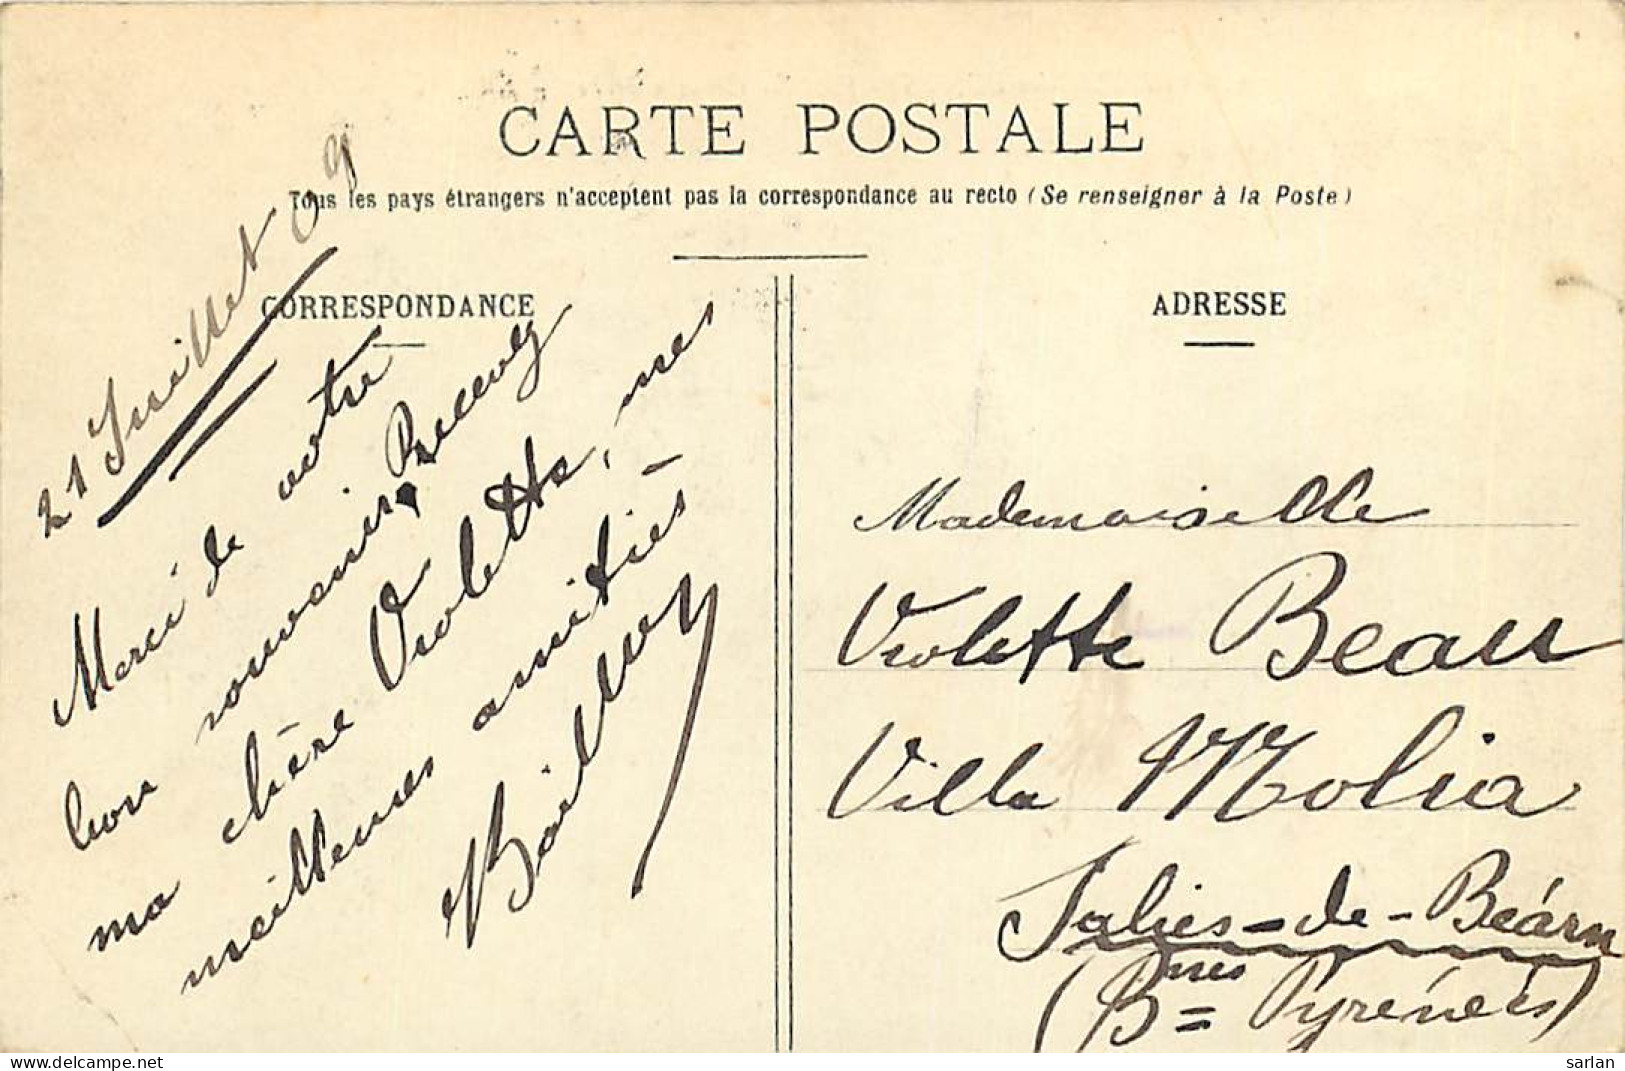 CARTE POSTALE
Tous les pays étrangers n'acceptent pas la correspondance au recto (Se renseigner à la Poste)
CORRESPONDANCE
21 Juillet 09
Merci de votre
bon souvenir. Recevez
ma chère Violette, mes
meilleures amitiés
ADRESSE
Mademoiselle
Violette Beau
Villa Molia
Salies-de-Béarn
(Bses Pyrénées)
sarlan